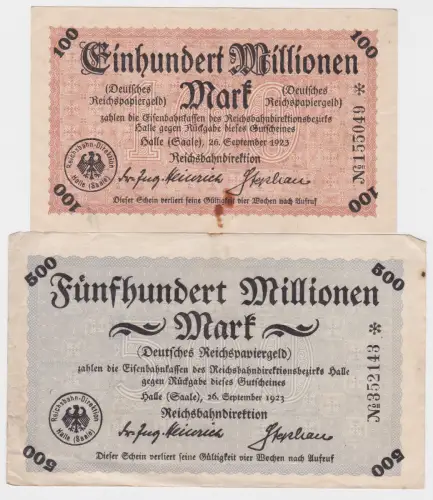 100
100
Einhundert Millionen
Mark
(Deutsches
Reichspapiergeld)
(Deutsches
Reichspapiergeld)
zahlen die Eisenbahnkassen des Reichsbahndirektionsbezirks
Halle gegen Rückgabe dieses Gutscheines
Halle (Saale), 26. September 1923
Reichsbahndirektion
Reichsbahn-Direktion
Halle (Saale)
Stephan
Dieser Schein verliert seine Gültigkeit vier Wochen nach Aufruf
100
100
№155049 *
500
500
Fünfhundert Millionen
Mark
(Deutsches Reichspapiergeld)
zahlen die Eisenbahnkassen des Reichsbahndirektionsbezirks Halle
gegen Rückgabe dieses Gutscheines
Halle (Saale), 26. September 1923
Reichsbahndirektion
Reichsbahn-Direktion
Halle (Saale)
Stephan
Dieser Schein verliert seine Gültigkeit vier Wochen nach Aufruf
500
500
№352143 *